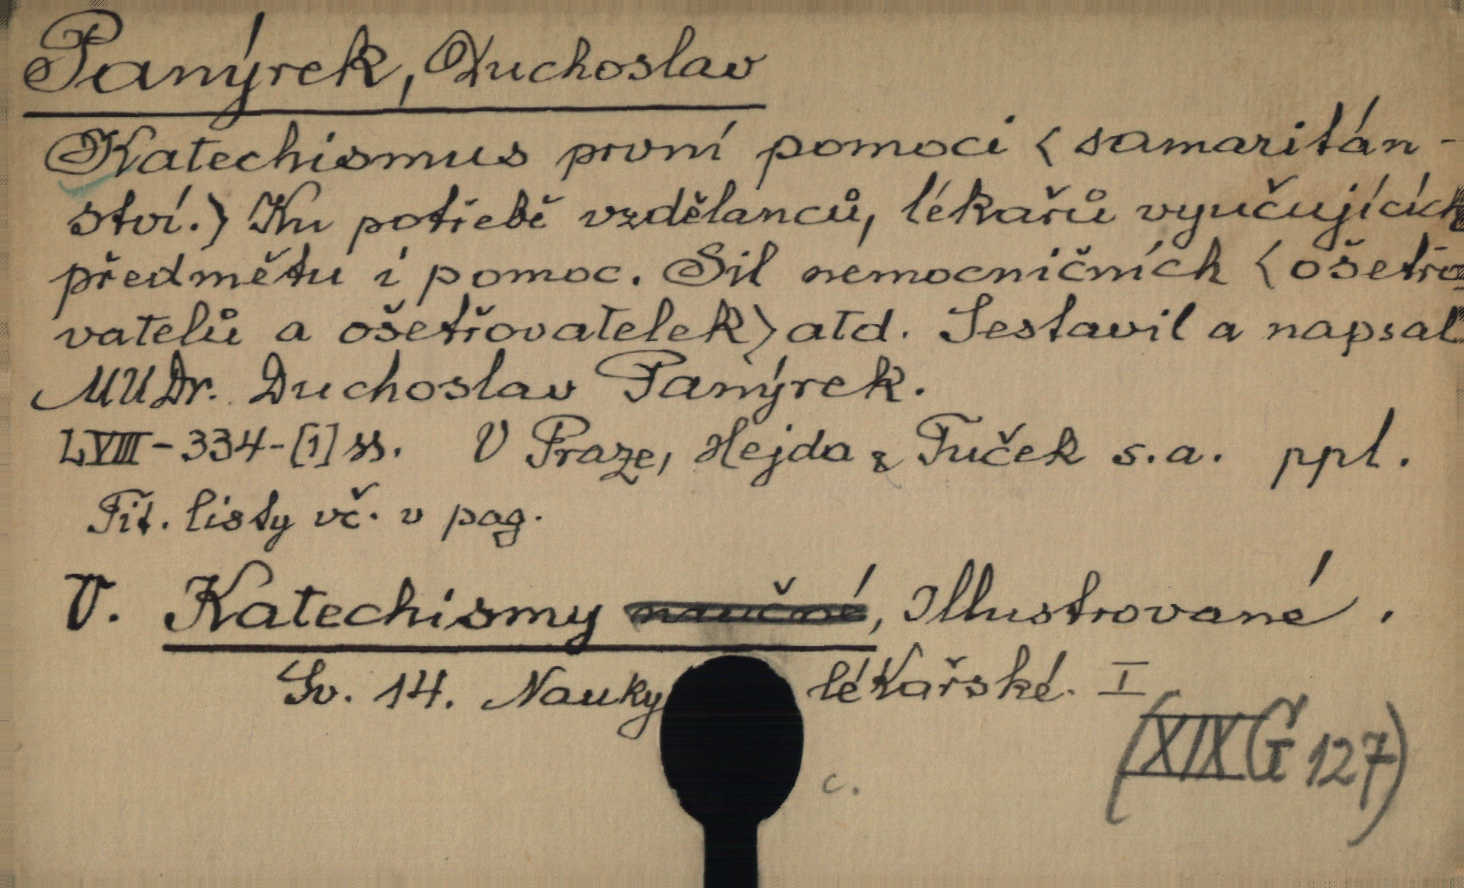 Panýrek, Duchoslav
Katechismus první pomoci (samaritán-
ství.) Ku potřebě vzdělanců, lékařů vyučujících
předmětu i pomoc. Sil nemocničních (ošetřo-
vatelů a ošetřovatelek) atd. Sestavil a napsal
MUDr. Duchoslav Panýrek.
LVIII-334-[1] ss. V Praze, Hejda & Tuček s.a. ppl.
Tit. listy vč. v pag.
V. Katechismy naučné, Illustrované.
Sv. 14. Nauky lékařské. I
c.
(XIX G 127)